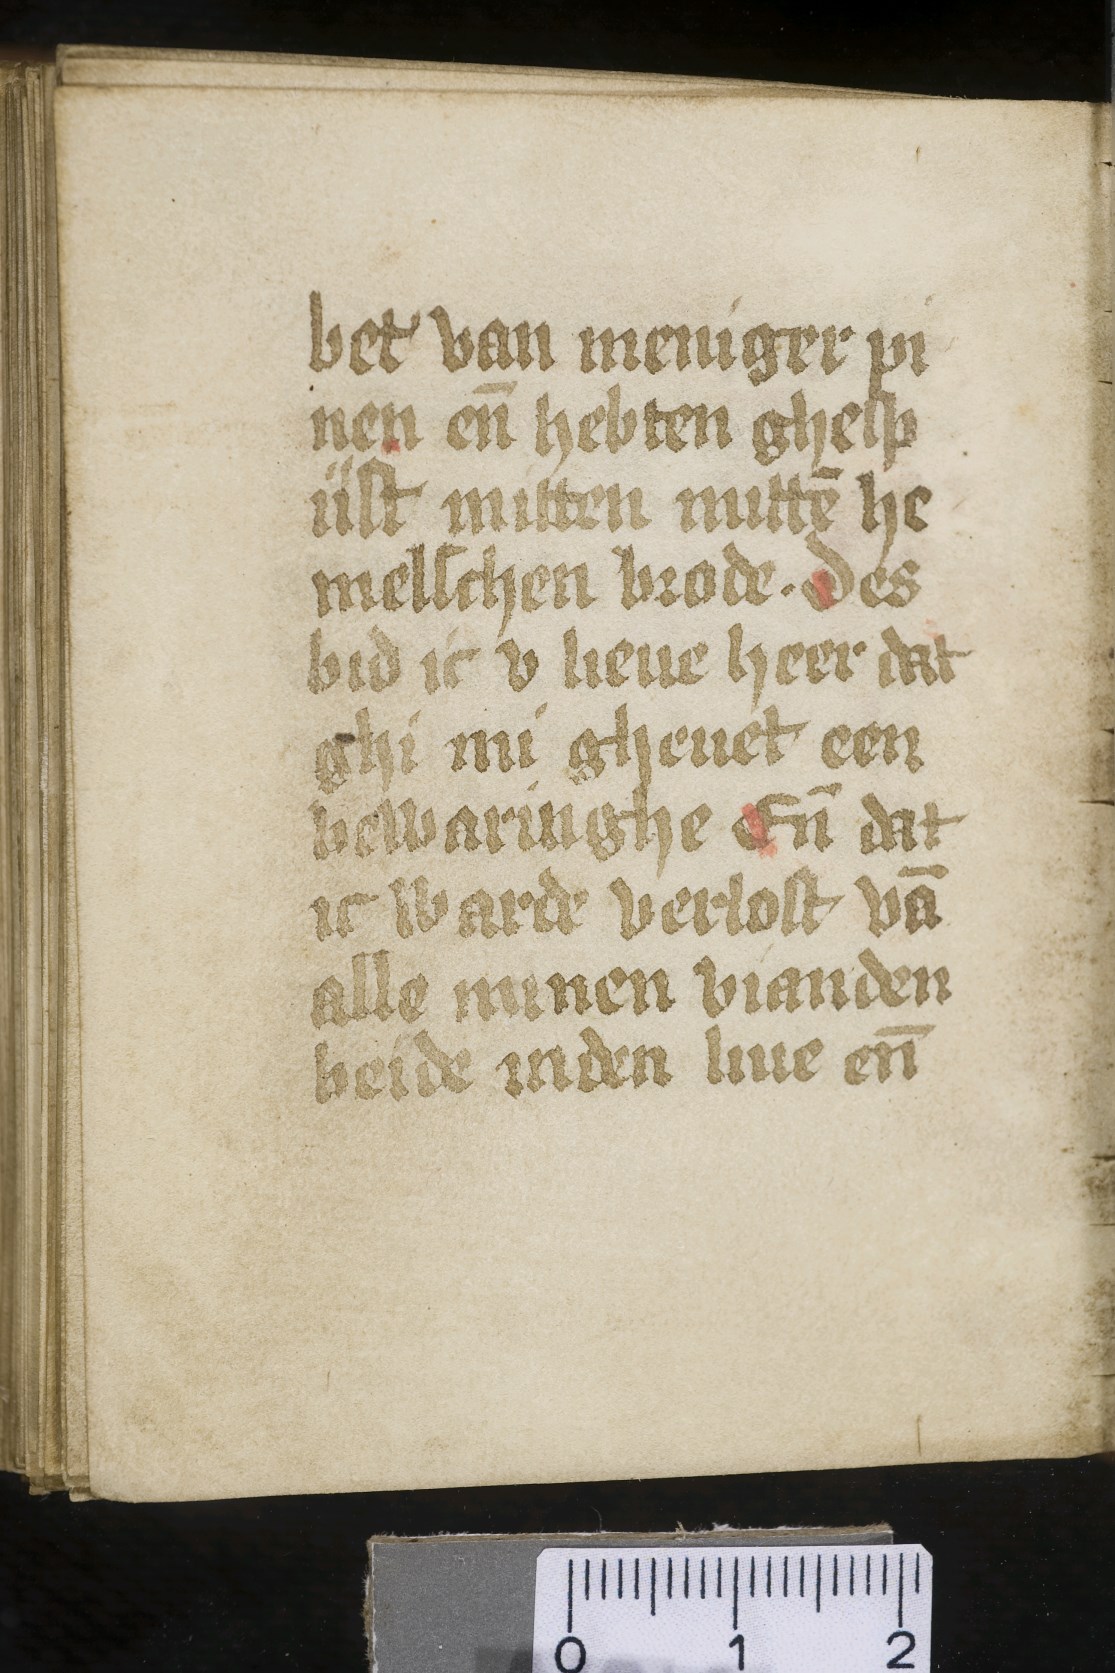 bet van meniger pi
nen en̄ hebten ghesp
iist mitten mittē he
melschen brode. Des
bid ic v lieue heer dat
ghi mi gheuet een
bewaringhe En̄ dat
ic warde verlost vā
alle minen vianden
beide inden liue en̄
0 1 2